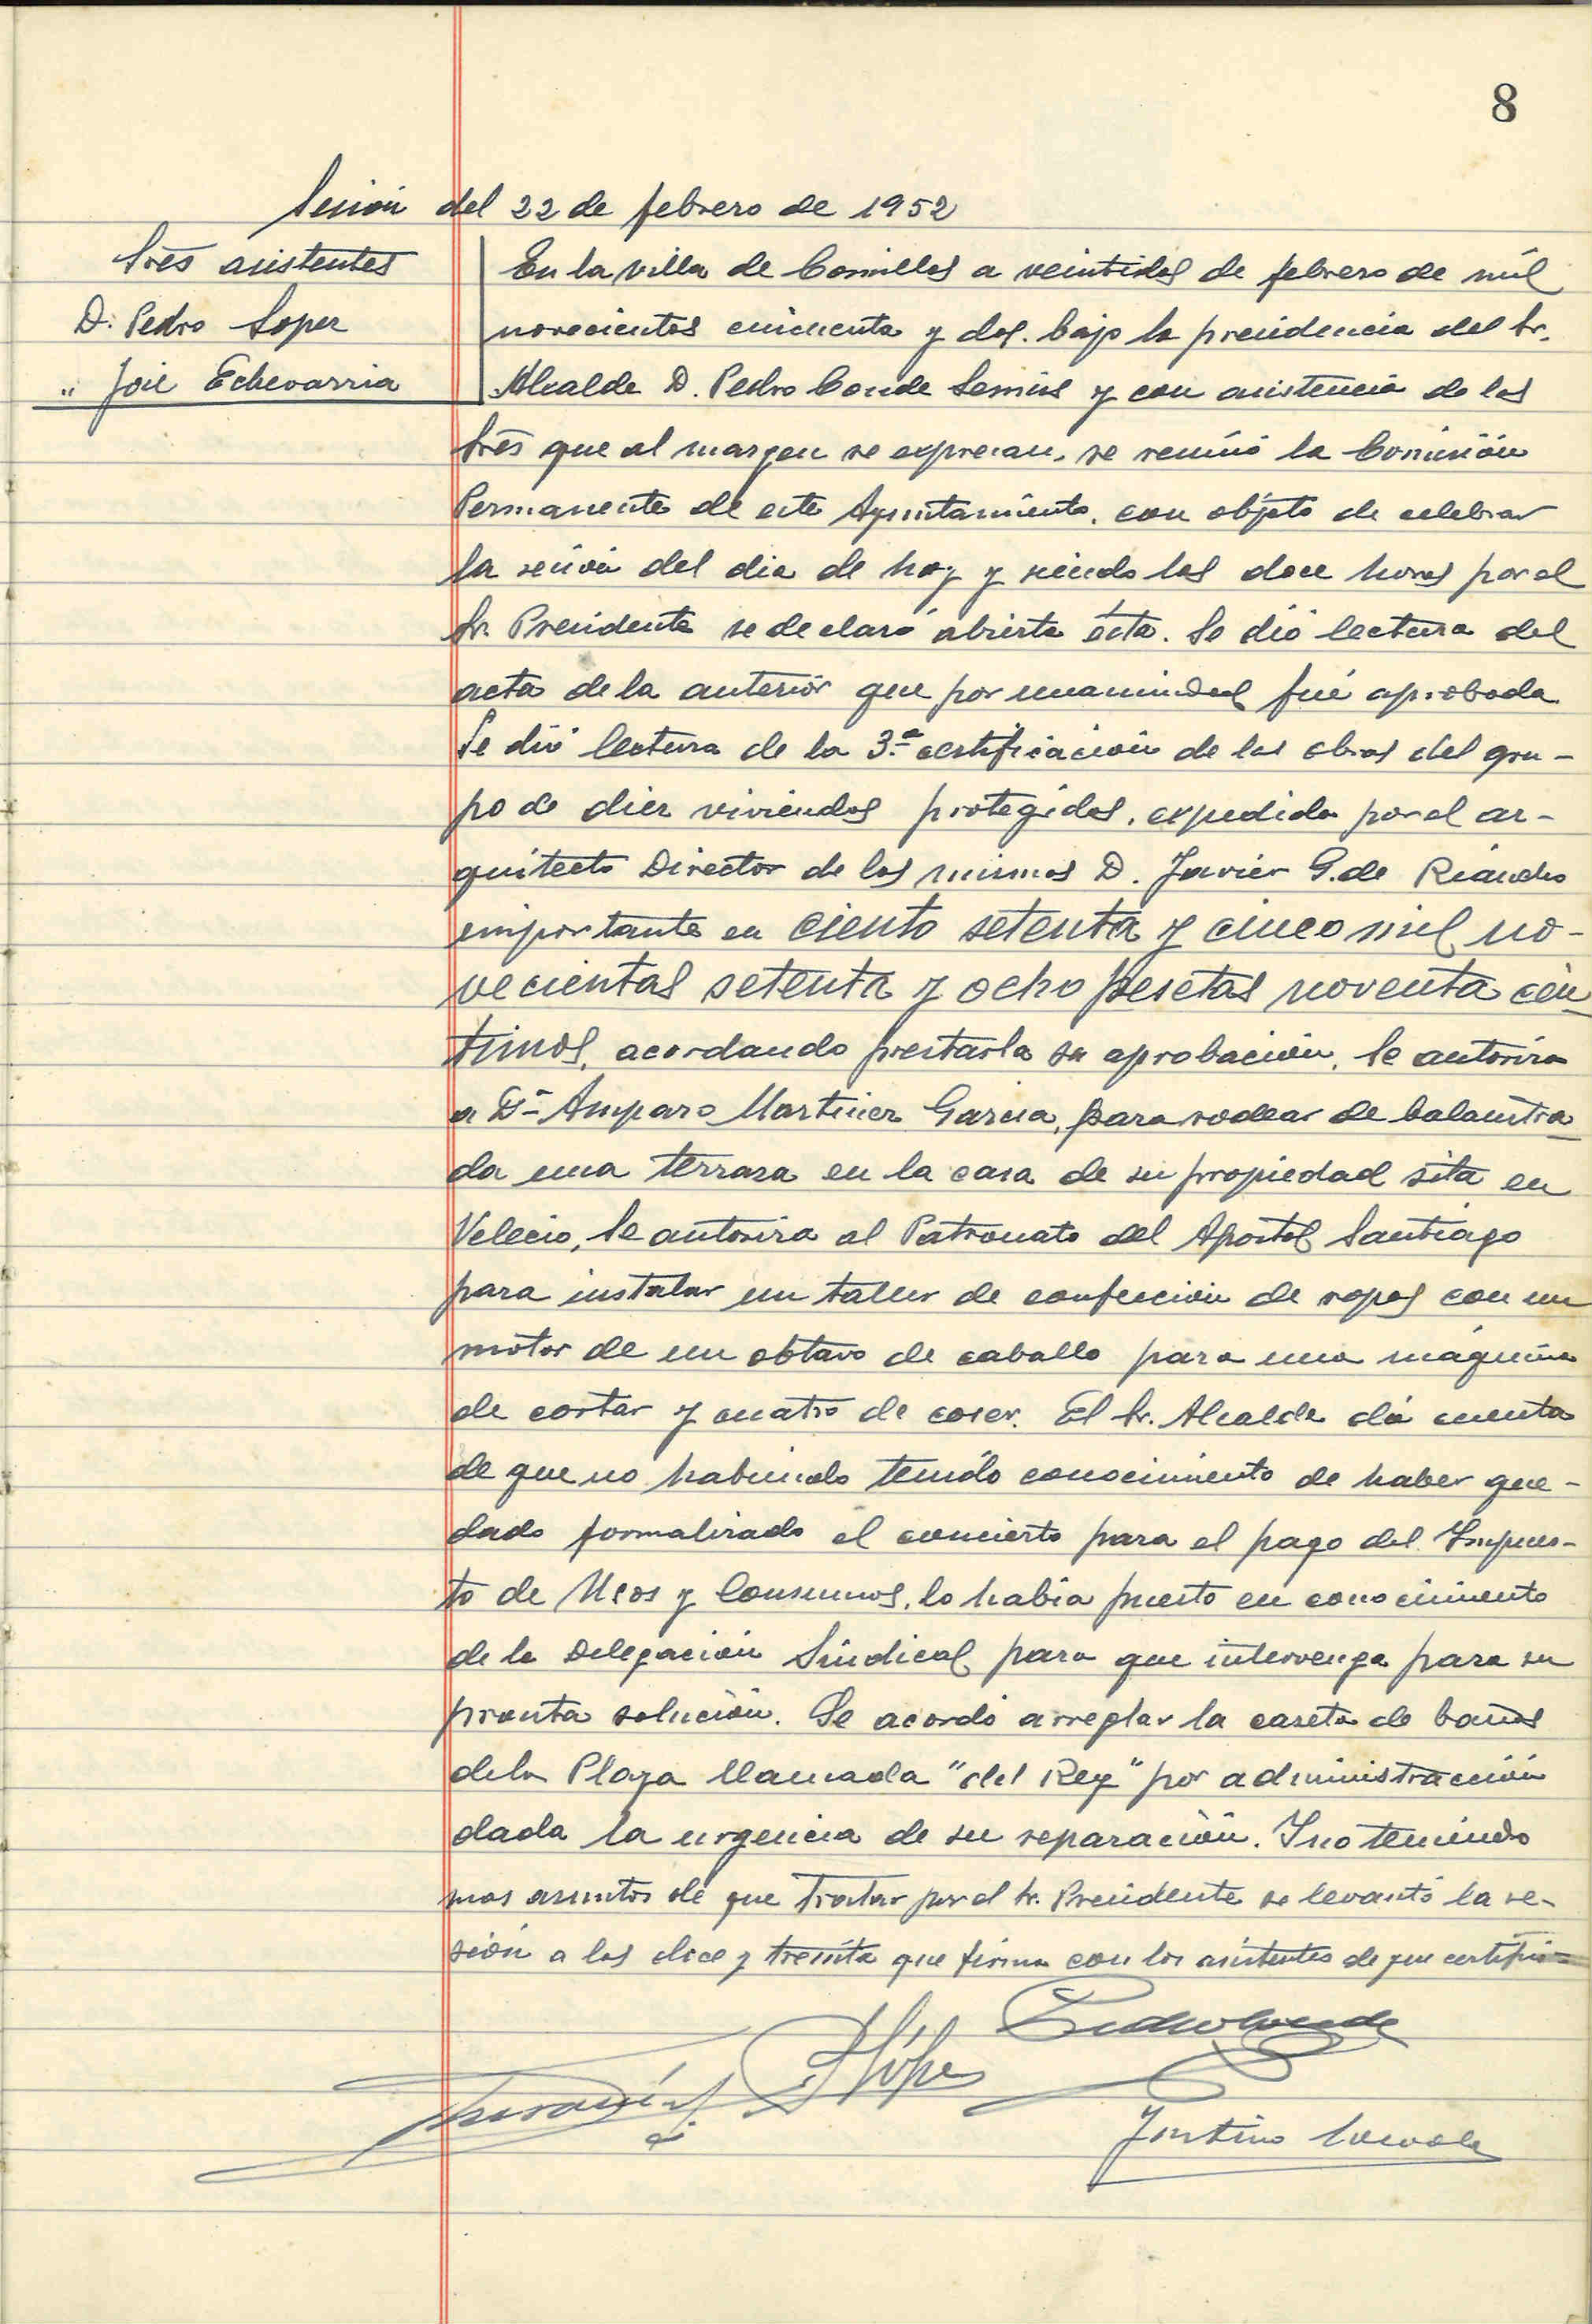 8
Sesión del 22 de febrero de 1952
Sres asistentes
D. Pedro Lopez
" José Echevarria
En la villa de Comillas a veintidos de febrero de mil
novecientos cincuenta y dos. bajo la presidencia del Sr.
Alcalde D. Pedro Conde y con asistencia de los
Sres que al margen se expresan, se reunió la Comisión
Permanente de este Ayuntamiento, con objeto de celebrar
la sesión del dia de hoy y siendo las doce horas por el
Sr. Presidente se declaró abierta ésta. Se dió lectura del
acta de la anteriór que por unanimidad fué aprobada
Se dió lectura de la 3.ª certificación de las obras del gru-
po de diez viviendas protegidas, expedida por el ar-
quitecto Director de las mismas D. Javier G. de Riancho
importante en ciento setenta y cinco mil no-
vecientas setenta y ocho pesetas noventa cén-
timos, acordando prestarla su aprobación. Se autoriza
a Dª Amparo Martinez Garcia, para rodear de balaustra-
da una terraza en la casa de su propiedad sita en
Velecio, Se autoriza al Patronato del Apostol Santiago
para instalar un taller de confección de ropas con un
motor de un obtavo de caballo para una máquina
de cortar y cuatro de coser. El Sr. Alcalde dá cuenta
de que no habiendo tenido conocimiento de haber que-
dado formalizado el concierto para el pago del Impues-
to de Usos y Consumos, lo habia puesto en conocimiento
de la Delegación Sindical para que intervenga para su
pronta solución. Se acordó arreglar la caseta de baños
de la Playa llamada "del Rey" por administracción
dada la urgencia de su reparación. Y no teniendo
mas asuntos de que tratar por el Sr. Presidente se levantó la se-
sión a las doce y treinta que firma con los asistentes de que certifico=
Pedro Conde
P. López
Justino